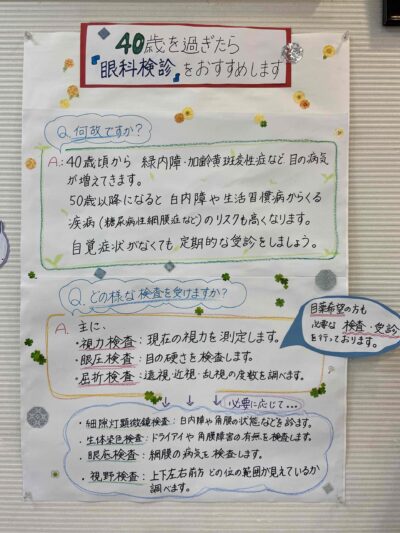 40歳を過ぎたら
『眼科検診』をおすすめします
Q. 何故ですか?
A.:40歳頃から 緑内障・加齢黄斑変性症など 目の病気
が増えてきます。
50歳以降になると 白内障や 生活習慣病からくる
疾病(糖尿病性網膜症など)のリスクも高くなります。
自覚症状がなくても 定期的な受診をしましょう。
Q. どの様な検査を受けますか?
A. 主に、
・視力検査:現在の視力を測定します。
・眼圧検査:目の硬さを検査します。
・屈折検査:遠視・近視・乱視の度数を調べます。
目薬希望の方も
必要な 検査・受診
を行っております。
↓ ↓ ↓ 必要に応じて...
・細隙灯顕微鏡検査:白内障や角膜の状態などを診ます。
・生体染色検査:ドライアイや角膜障害の有無を検査します。
・眼底検査:網膜の病気を検査します。
・視野検査:上下左右前方 どの位の範囲が見えているか
調べます。